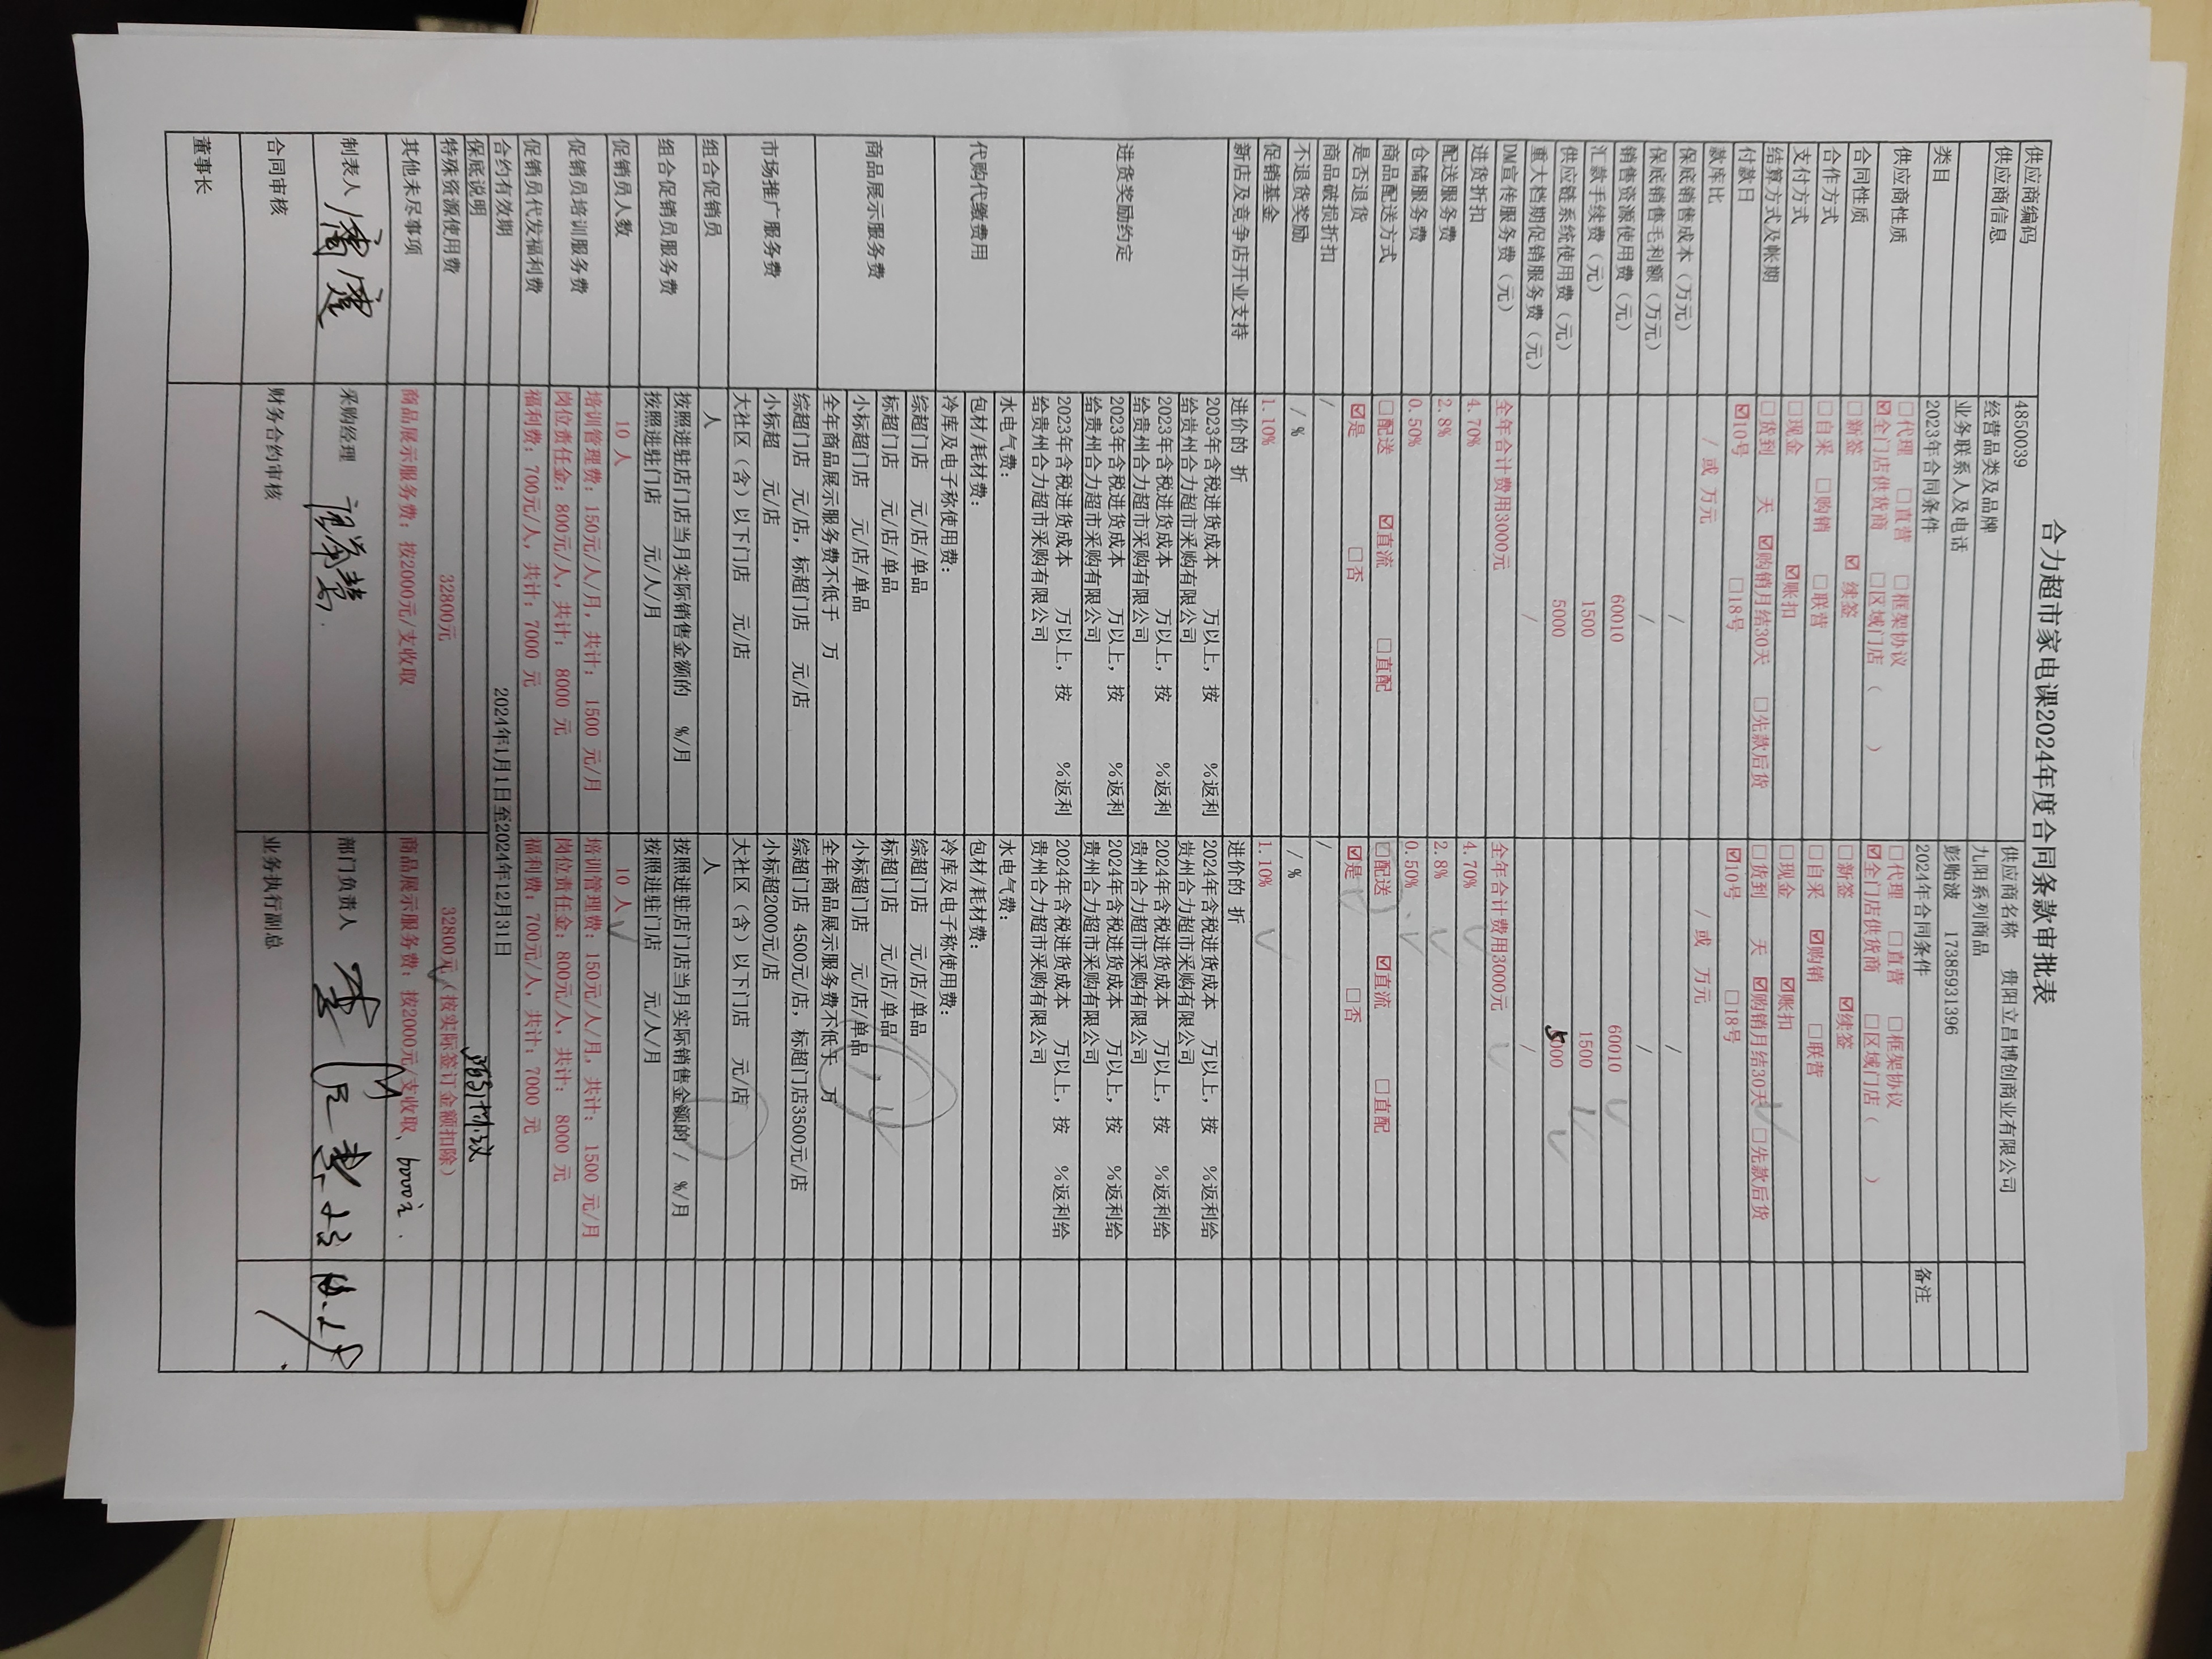 合力超市家电课2024年度合同条款审批表
供应商编码 4850039 供应商名称 贵阳立昌博创商业有限公司
供应商信息 经营品类及品牌 九阳系列商品
业务联系人及电话 彭贻波 17385931396
类目 2023年合同条件 2024年合同条件 备注
供应商性质 □代理 □直营 □框架协议 □代理 □直营 □框架协议
☑全门店供货商 □区域门店（ ） ☑全门店供货商 □区域门店（ ）
合同性质 □新签 ☑ 续签 □新签 ☑续签
合作方式 □自采 □购销 □联营 □自采 ☑购销 □联营
支付方式 □现金 ☑账扣 □现金 ☑账扣
结算方式及帐期 □货到 天 ☑购销月结30天 □先款后货 □货到 天 ☑购销月结30天 □先款后货
付款日 ☑10号 □18号 ☑10号 □18号
款库比 / 或 万元 / 或 万元
保底销售成本（万元） / /
保底销售毛利额（万元） / /
销售资源使用费（元） 60010 60010
汇款手续费（元） 1500 1500
供应链系统使用费（元） 5000 5000
重大档期促销服务费（元） / /
DM宣传服务费（元） 全年合计费用3000元 全年合计费用3000元
进货折扣 4.70% 4.70%
配送服务费 2.8% 2.8%
仓储服务费 0.50% 0.50%
商品配送方式 □配送 ☑直流 □直配 □配送 ☑直流 □直配
是否退货 ☑是 □否 ☑是 □否
商品破损折扣 / /
不退货奖励 / % / %
促销基金 1.10% 1.10%
新店及竞争店开业支持 进价的 折 进价的 折
进货奖励约定 2023年含税进货成本 万以上，按 %返利 2024年含税进货成本 万以上，按 %返利给
给贵州合力超市采购有限公司 贵州合力超市采购有限公司
2023年含税进货成本 万以上，按 %返利 2024年含税进货成本 万以上，按 %返利给
给贵州合力超市采购有限公司 贵州合力超市采购有限公司
2023年含税进货成本 万以上，按 %返利 2024年含税进货成本 万以上，按 %返利给
给贵州合力超市采购有限公司 贵州合力超市采购有限公司
2023年含税进货成本 万以上，按 %返利 2024年含税进货成本 万以上，按 %返利给
给贵州合力超市采购有限公司 贵州合力超市采购有限公司
代购代缴费用 水电气费： 水电气费：
包材/耗材费： 包材/耗材费：
冷库及电子称使用费： 冷库及电子称使用费：
商品展示服务费 综超门店 元/店/单品 综超门店 元/店/单品
标超门店 元/店/单品 标超门店 元/店/单品
小标超门店 元/店/单品 小标超门店 元/店/单品
全年商品展示服务费不低于 万 全年商品展示服务费不低于 万
市场推广服务费 综超门店 元/店，标超门店 元/店 综超门店 4500元/店，标超门店3500元/店
小标超 元/店 小标超2000元/店
大社区（含）以下门店 元/店 大社区（含）以下门店 元/店
组合促销员 人 人
组合促销员服务费 按照进驻店门店当月实际销售金额的 %/月 按照进驻店门店当月实际销售金额的 / %/月
按照进驻门店 元/人/月 按照进驻门店 元/人/月
促销员人数 10 人 10 人
促销员培训服务费 培训管理费：150元/人/月，共计： 1500 元/月 培训管理费：150元/人/月，共计： 1500 元/月
岗位责任金：800元/人，共计： 8000 元 岗位责任金：800元/人，共计： 8000 元
促销员代发福利费 福利费：700元/人，共计：7000 元 福利费：700元/人，共计：7000 元
合约有效期 2024年1月1日至2024年12月31日
保底说明
特殊资源使用费 32800元 32800元（按实际签订金额扣除）
其他未尽事项 商品展示服务费：按2000元/支收取 商品展示服务费：按2000元/支收取、6000元.
制表人 采购经理 部门负责人
合同审核 财务合约审核 业务执行副总
董事长